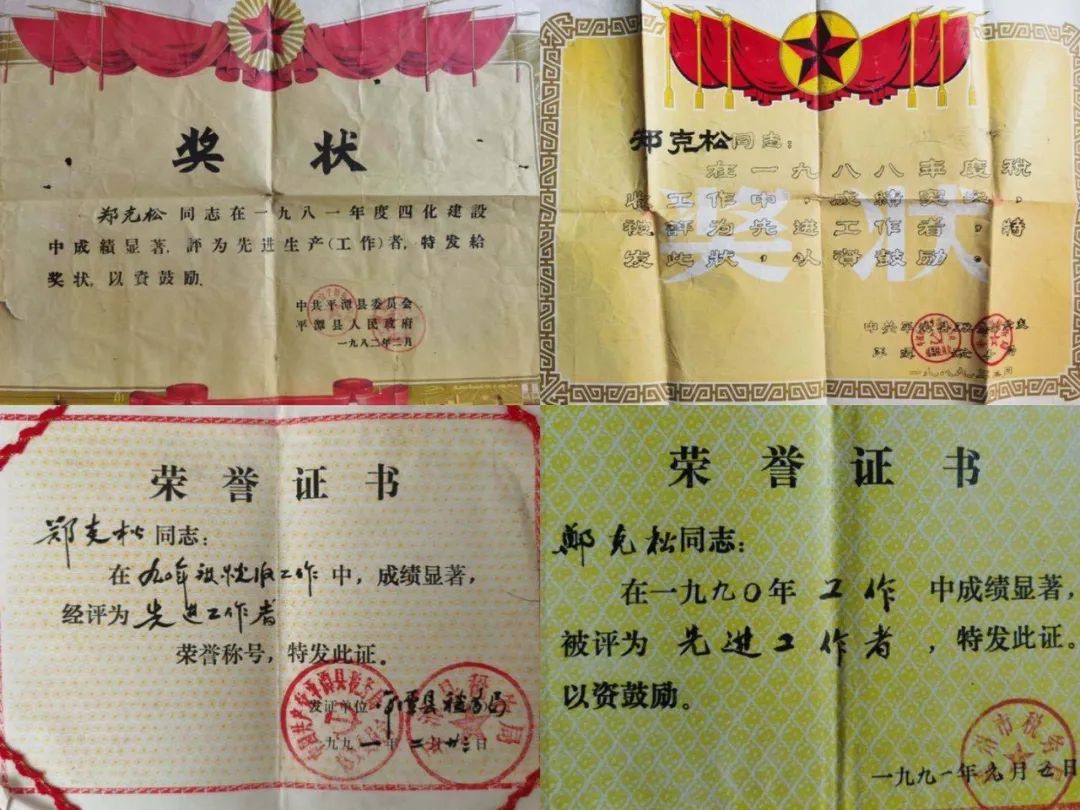 奖状
郑克松同志在一九八一年度四化建设
中成绩显著,評为先进生产(工作)者,特发给
奖状,以資鼓励.
中共平潭县委员会
平潭县人民政府
一九八二年二月
奖状
郑克松同志:
在一九八八年度税
收工作中,成绩突出,
被評为先进工作者,特
发此狀,以資鼓励。
荣誉证书
郑克松同志:
在九〇年 工作中,成绩显著,
经评为先进工作者
荣誉称号,特发此证。
发证单位 平潭县税务局
一九九一年二月廿三日
荣誉证书
郑克松同志:
在一九九〇年工作中成绩显著,
被评为先进工作者,特发此证。
以资鼓励。
一九九一年 月 日